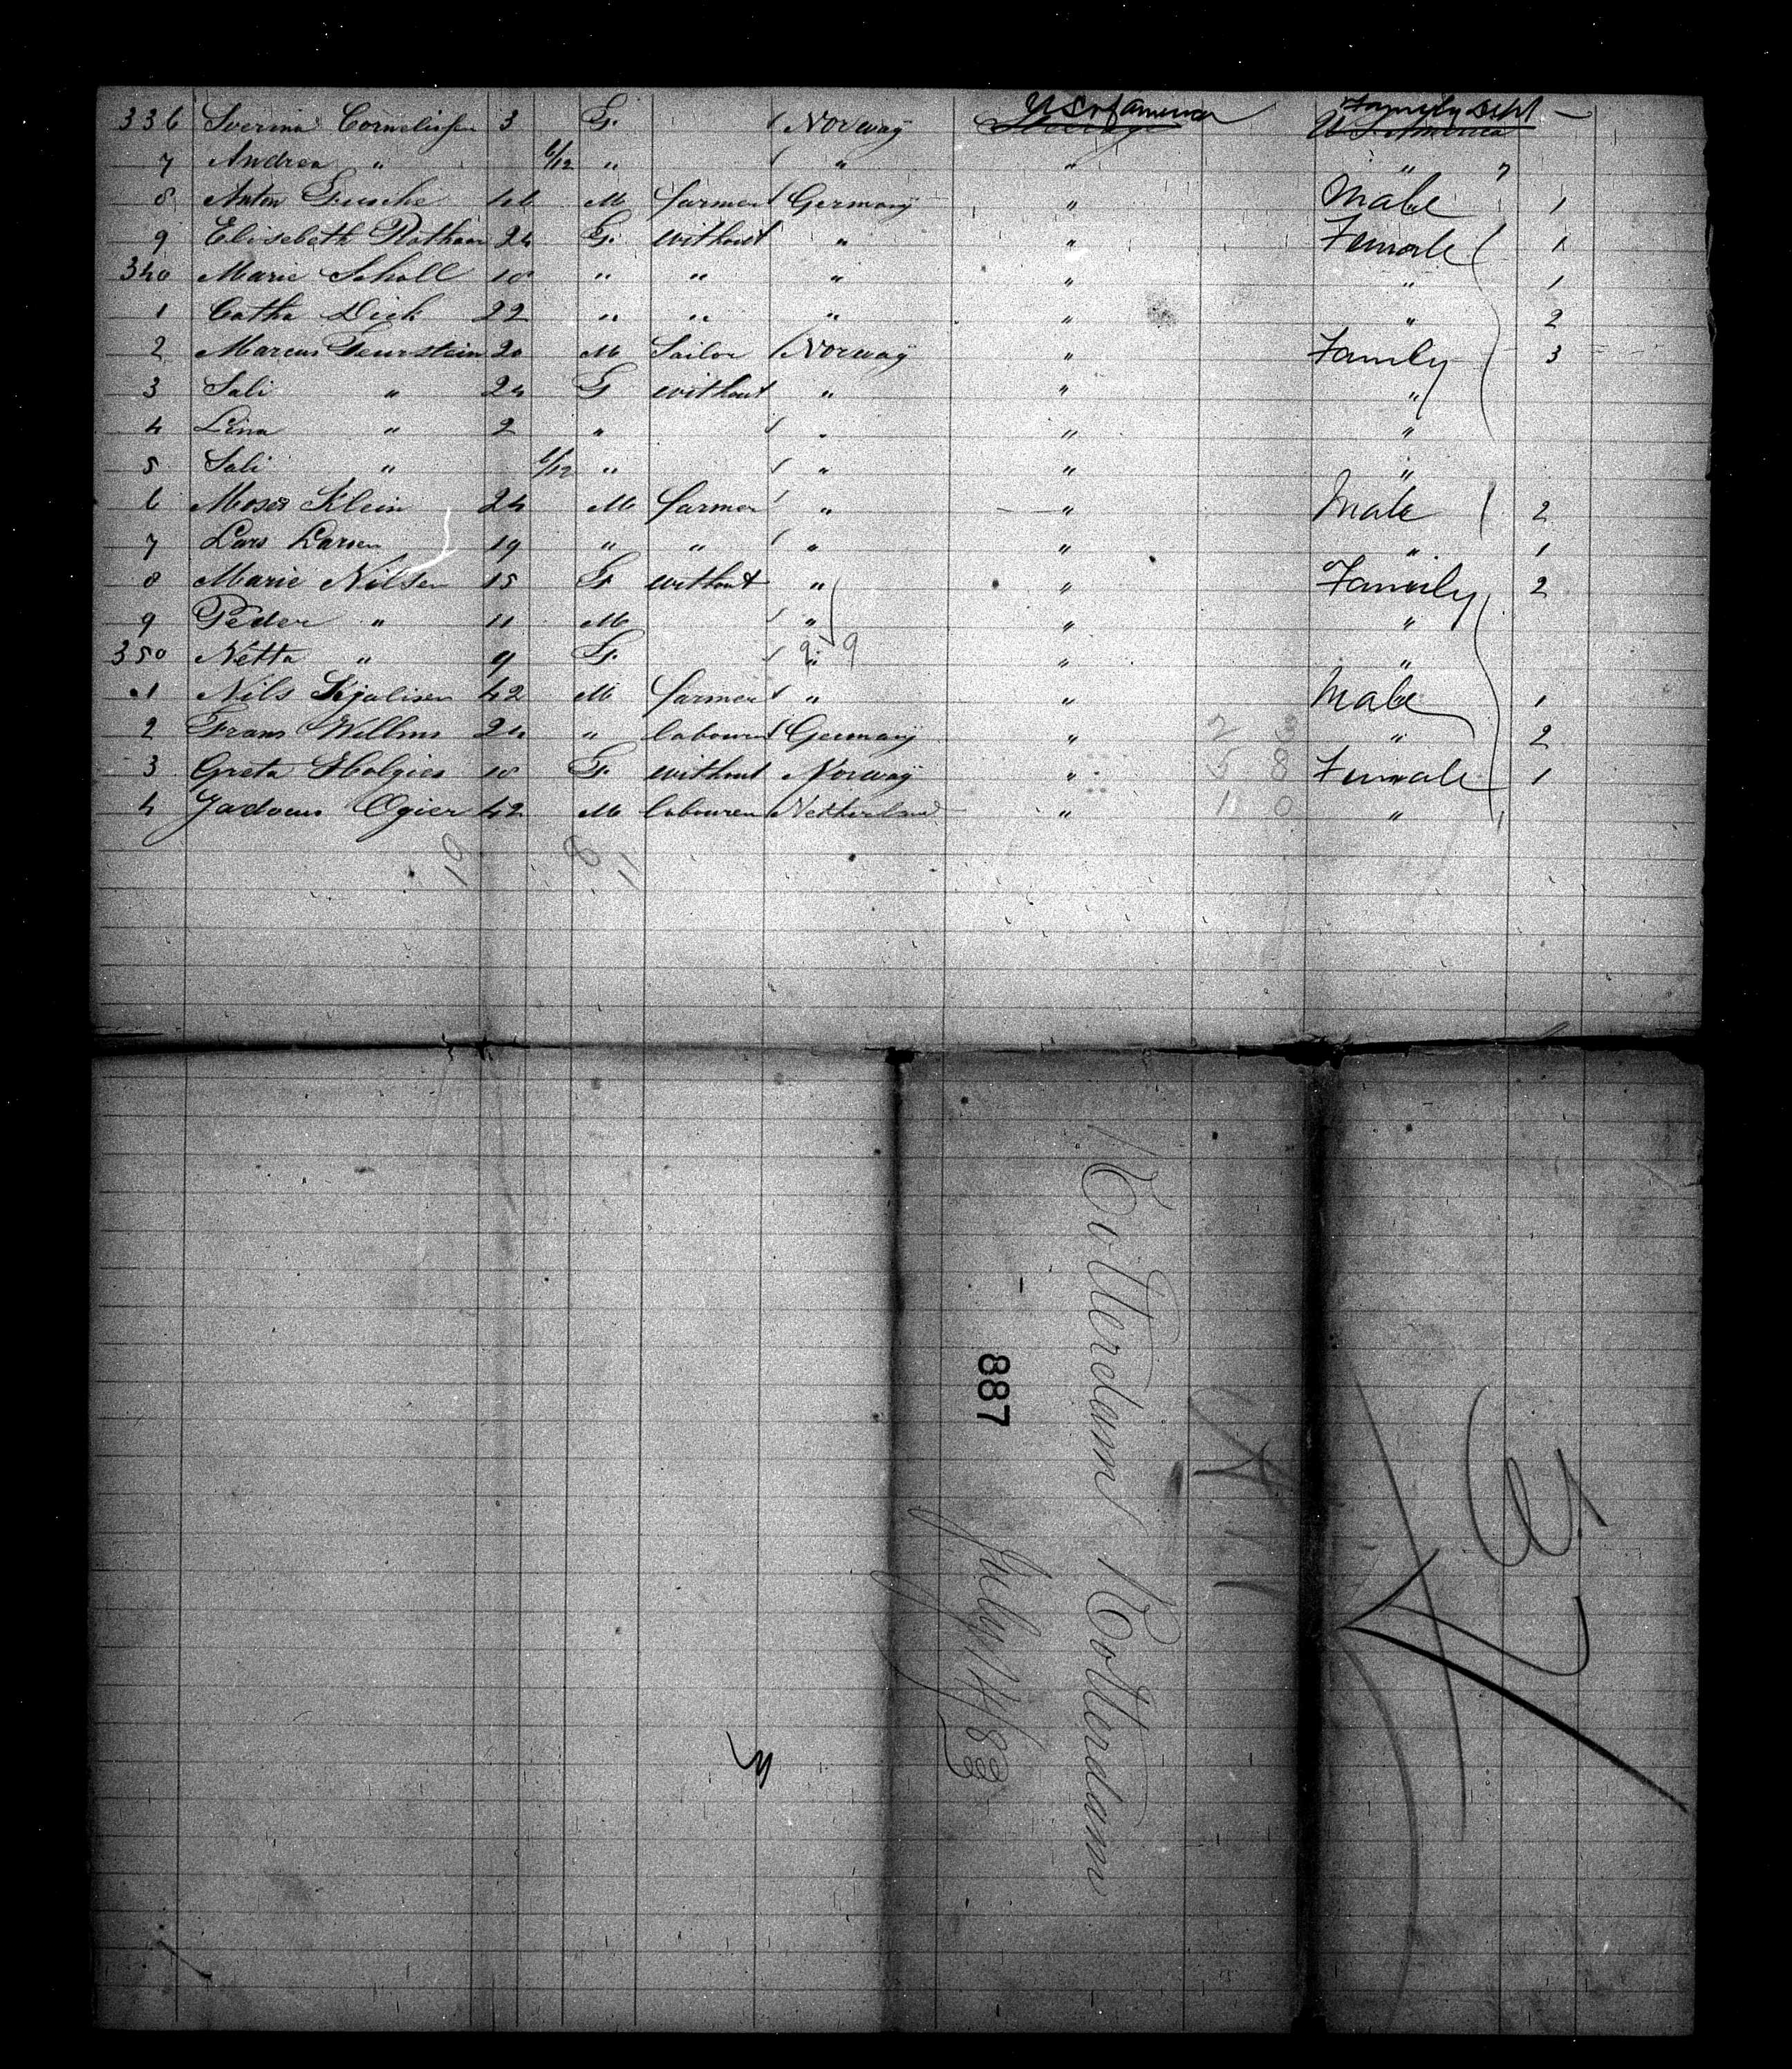 336 Sverina Cornelissen 3 F. Norway U S of America Steerage Family Dept U S America
7 Andrea " 6/12 " " " " "
8 Anton 46 M farmer Germany " Male 1
9 Elisebeth 24 F. without " " Female 1
340 Marie Scholl 18 " " " " " 1
1 Catha Dick 22 " " " " " 2
2 Marcus Feurstein 20 M Tailor Norway " Family 3
3 Sali " 24 F without " " "
4 Lina " 2 " " " "
5 Sali " 6/12 " " " "
6 Moses Klein 24 M farmer " " Male 2
7 Lars Larsen 19 " " " " " 1
8 Marie Nilsen 15 F without " " Family 2
9 Peder " 11 M " " "
350 Netta " 9 F. " " "
1 Nils 42 M farmer " " Male 1
2 Frans Willms 24 " labourer Germany " " 2
3 Greta 18 F. without Norway " Female 1
4 Ogier 42 M labourer Netherland " "
19 8 11
Rotterdam Rotterdam
887
July 14/83